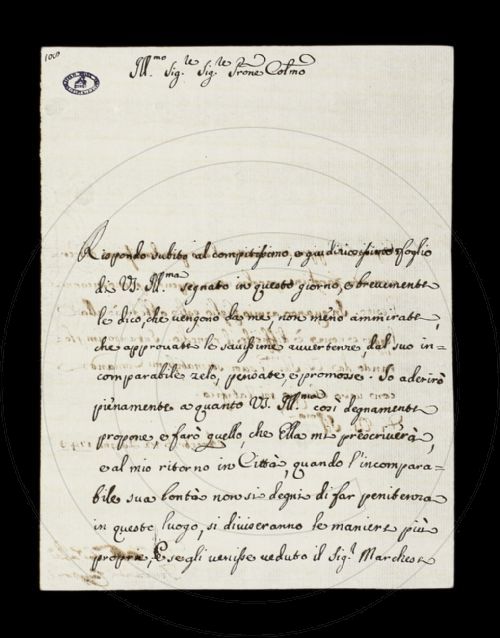 1000
Ill.mo Sig.re Sig.re P̃rone Col̃mo
Rispondo subito al compitissimo, e giudiziosissimo foglio
di VS. Ill.ma segnato in questo giorno, e brevemente
le dico, che vengono da me, non meno ammirate,
che approvate le saviissime avvertenze, dal suo in-
comparabile zelo, pensate, e promosse. Io aderirò
pienamente a quanto VS. Ill.ma così degnamente
propone, e farò quello, che Ella mi prescriverà,
e al mio ritorno in Città, quando l'incompara-
bile sua bontà non si degni di far penitenza
in questo luogo, si diviseranno le maniere più
proprie, E se gli venisse veduto il Sig.r Marchese